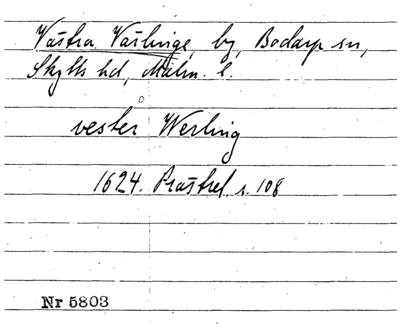 Västra Värlinge, by, Bodarp sn,
Skytts hd, Malm. l.
vester Werling
1624. Prästrel. s. 108
Nr 5803